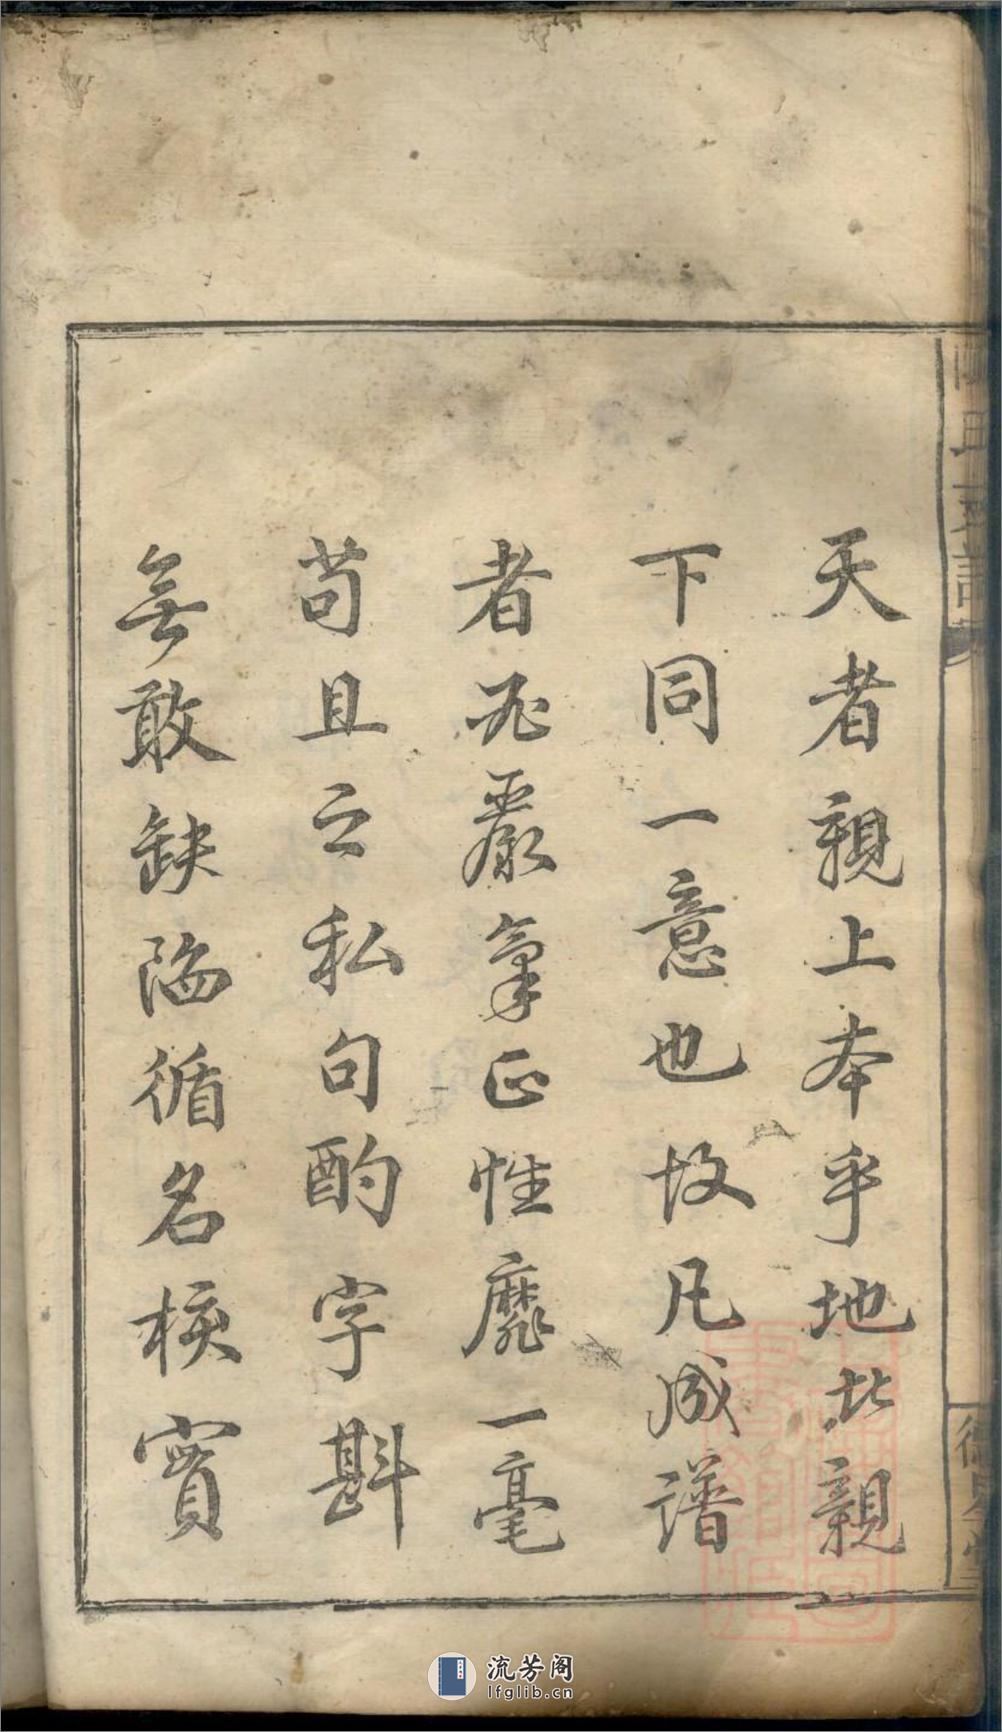 天者親上本乎地者親
下同一意也故凡成譜
者必嚴氣正性靡一毫
苟且之私句酌字斟
無敢缺陷循名核實
流芳阁
lfglib.cn